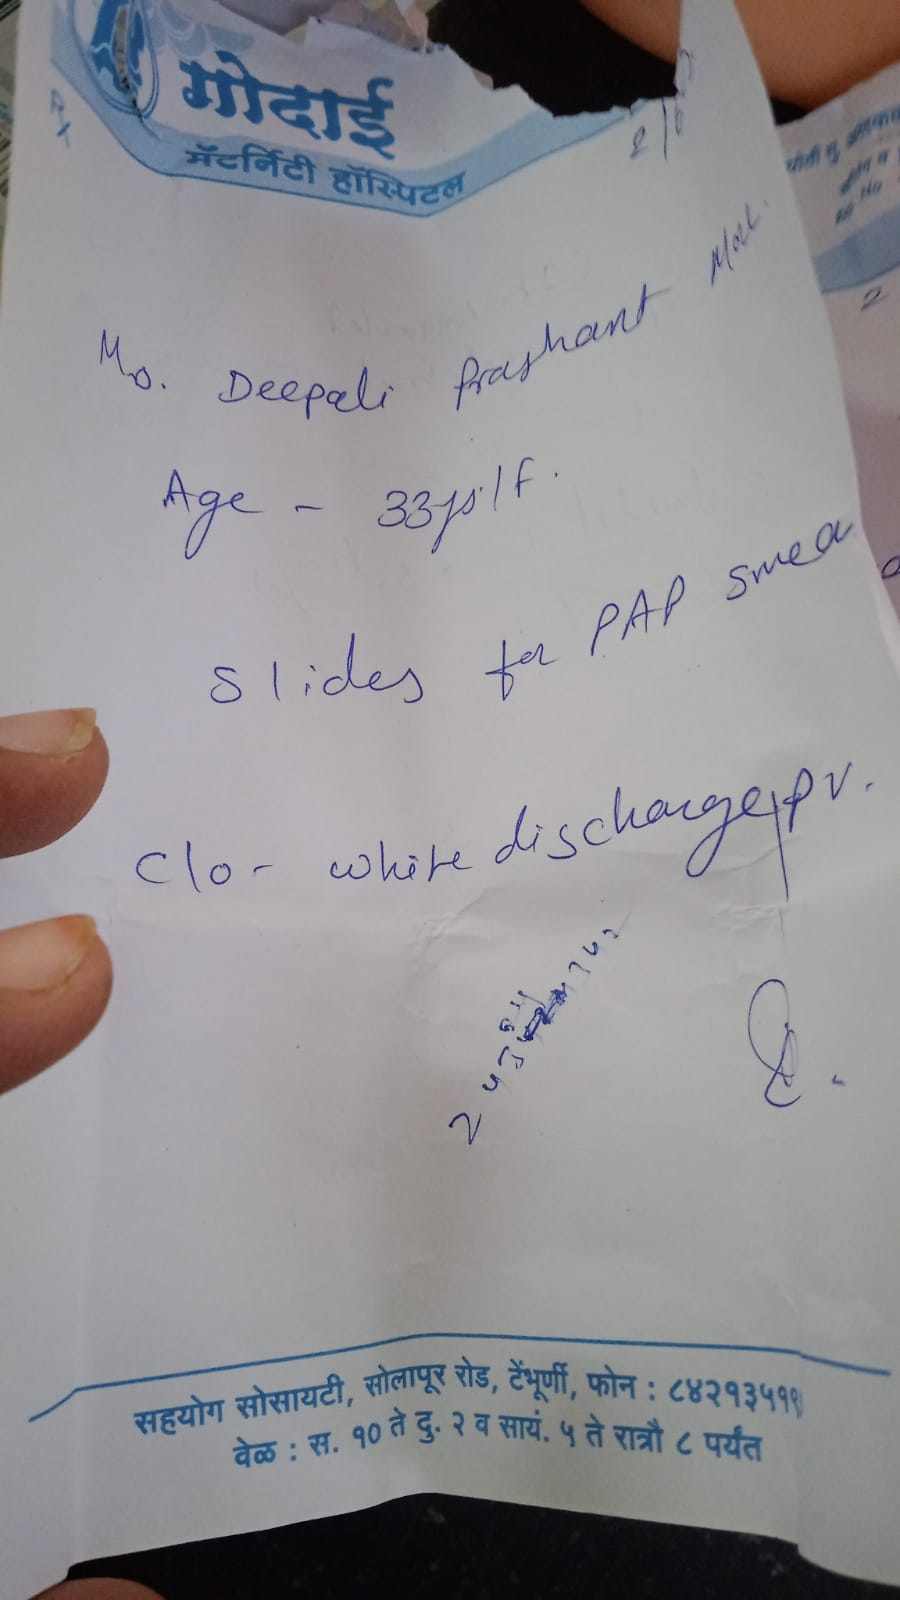 गोदाई
मॅटर्निटी हॉस्पिटल
Rx
2/6
Deepali Prashant
Age - 33yrs/F.
Slides for PAP smea
C/o - white discharge PV.
सहयोग सोसायटी, सोलापूर रोड, टेंभूर्णी, फोन : ८४२१३५११
वेळ : स. १० ते दु. २ व सायं. ५ ते रात्रौ ८ पर्यंत
2